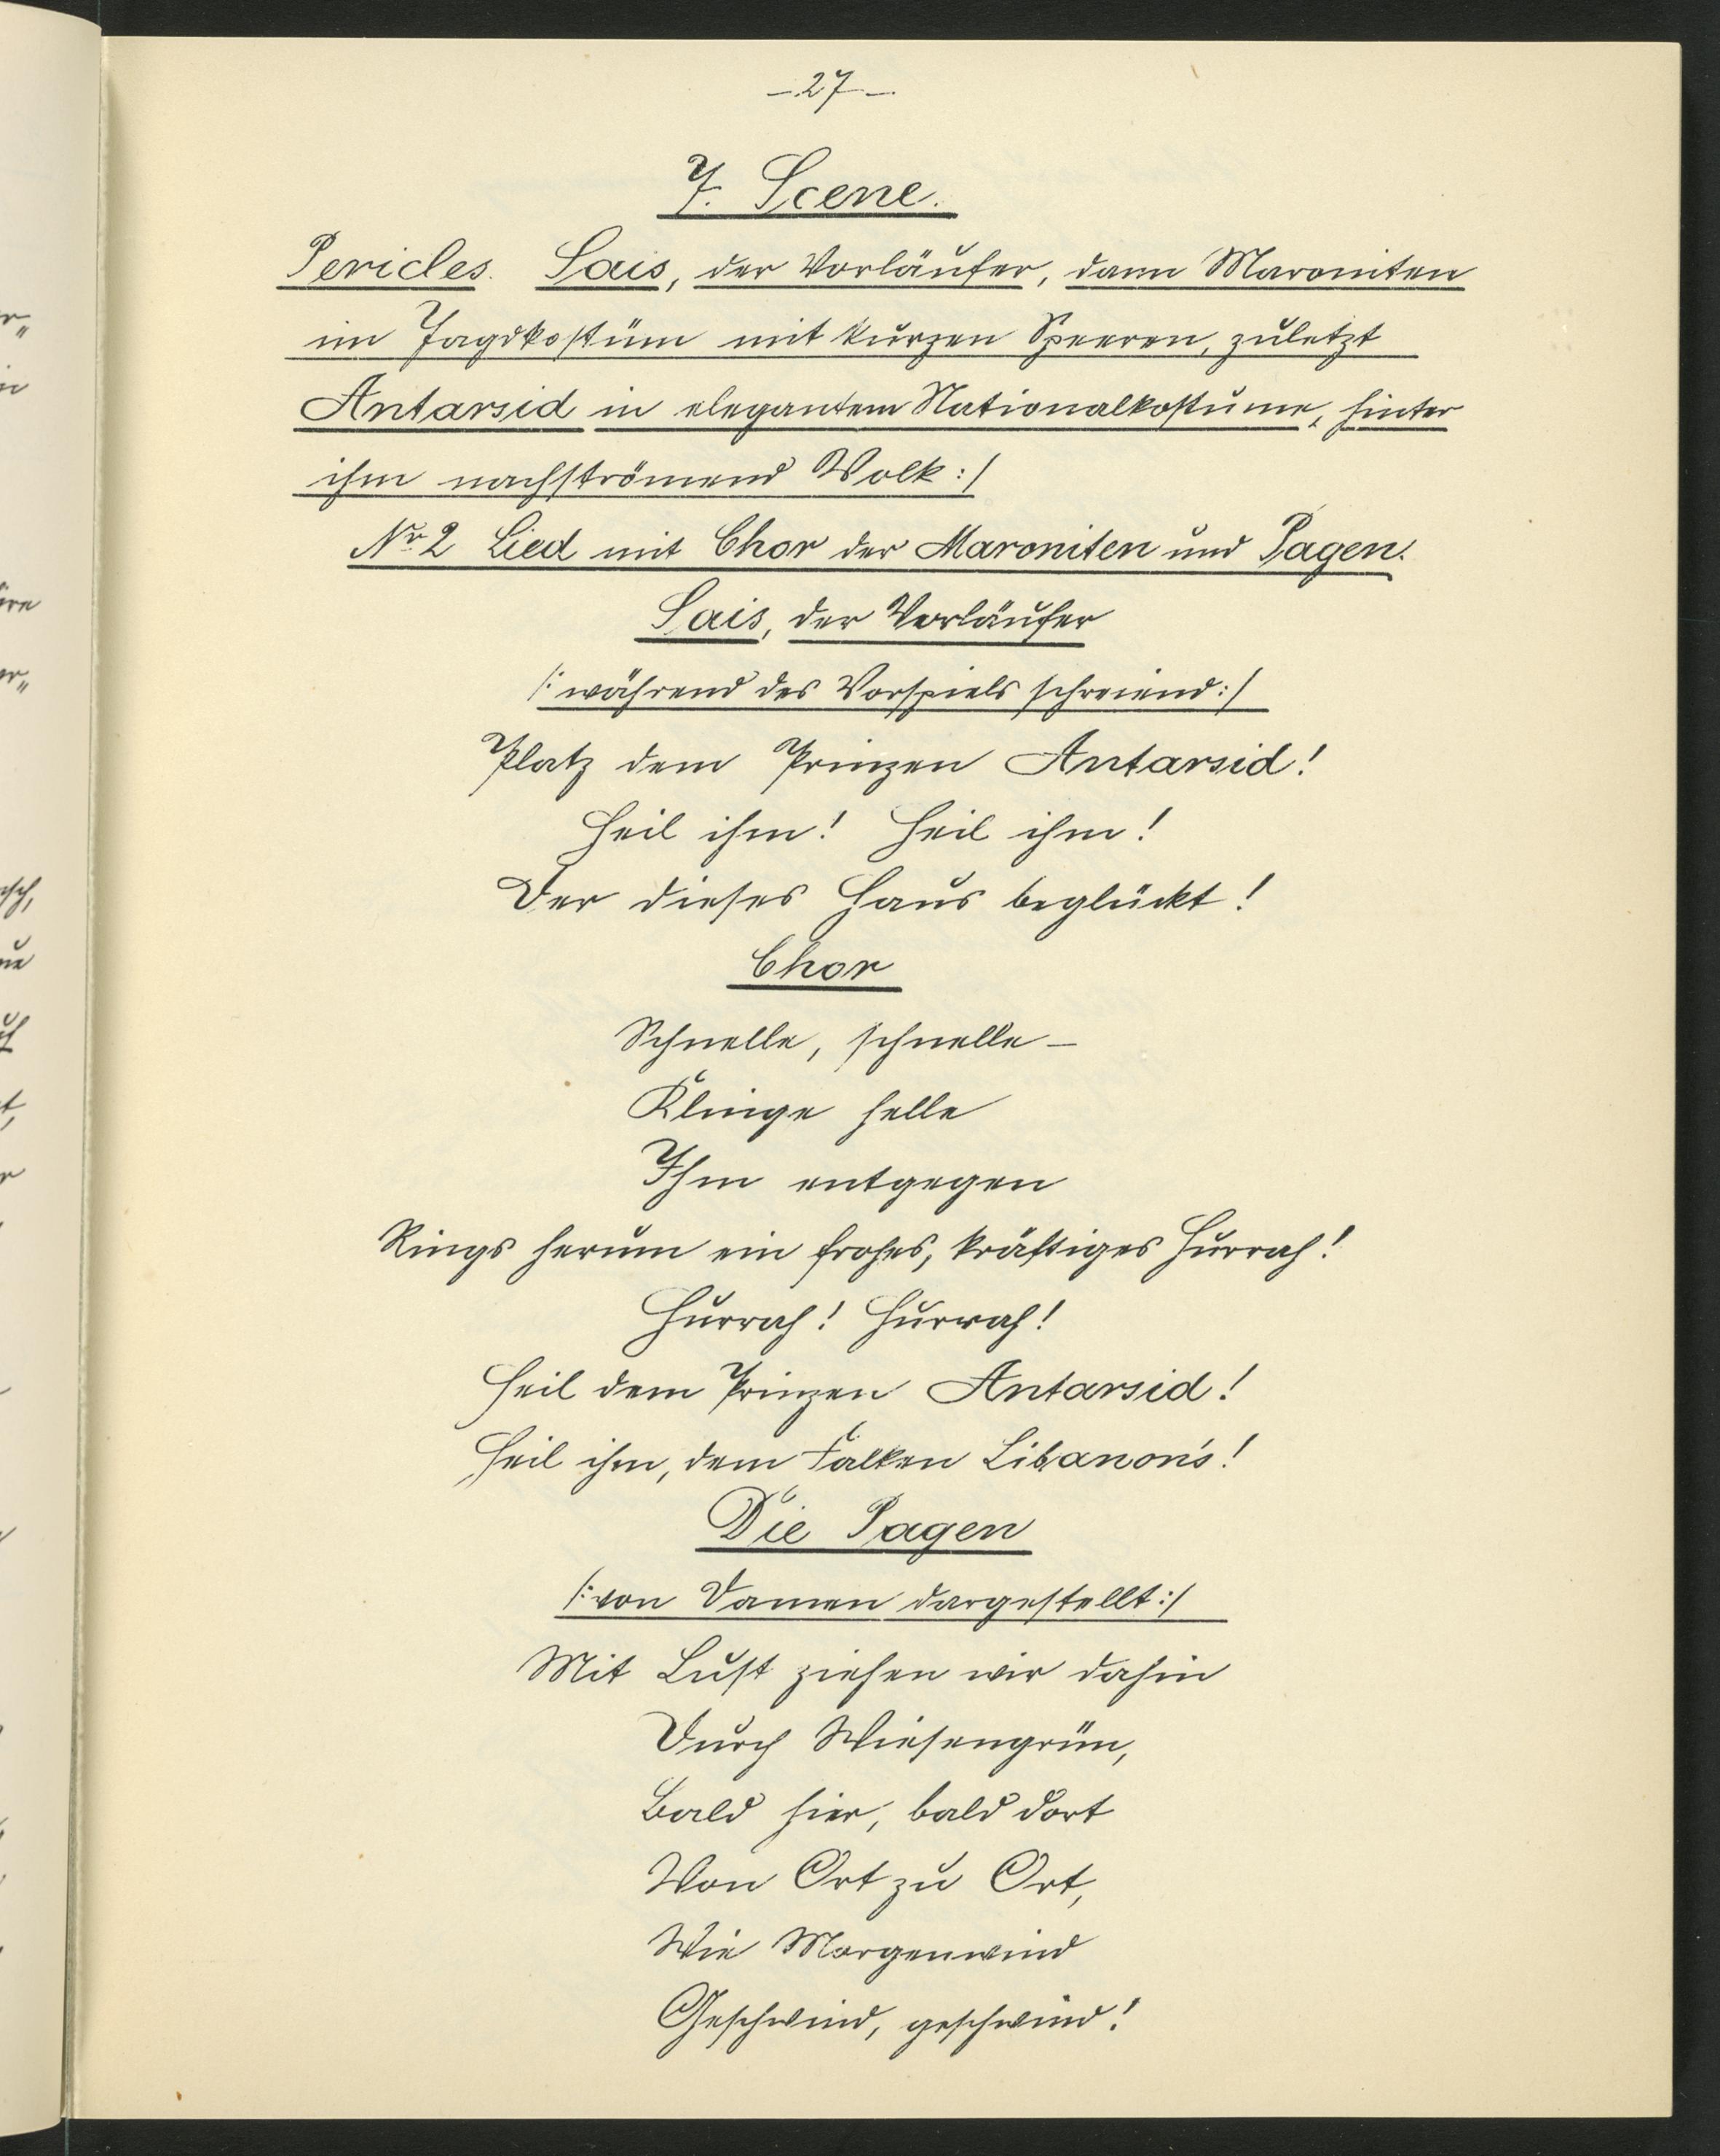 – 27 –
7. Scene.
Pericles. Sais, der Vorläufer, dann Maroniten
im Jagdkostüm mit kurzen Speeren, zuletzt
Antarsid in elegantem Nationalkostüme, hinter
ihm nachströmend Volk :/
Nr 2 Lied mit Chor der Maroniten und Pagen.
Sais, der Vorläufer
/: während des Vorspiels schreiend :/
Platz dem Prinzen Antarsid!
Heil ihm! Heil ihm!
Der dieses Haus beglückt!
Chor
Schnelle, schnelle –
Klinge helle
Ihm entgegen
Rings herum ein frohes, kräftiges Hurrah!
Hurrah! Hurrah!
Heil dem Prinzen Antarsid!
Heil ihm, dem Falken Libanon's!
Die Pagen
/: von Damen dargestellt :/
Mit Lust ziehen wir dahin
Durch Wiesengrün,
Bald hier, bald dort
Von Ort zu Ort,
Wie Morgenwind
Geschwind, geschwind!